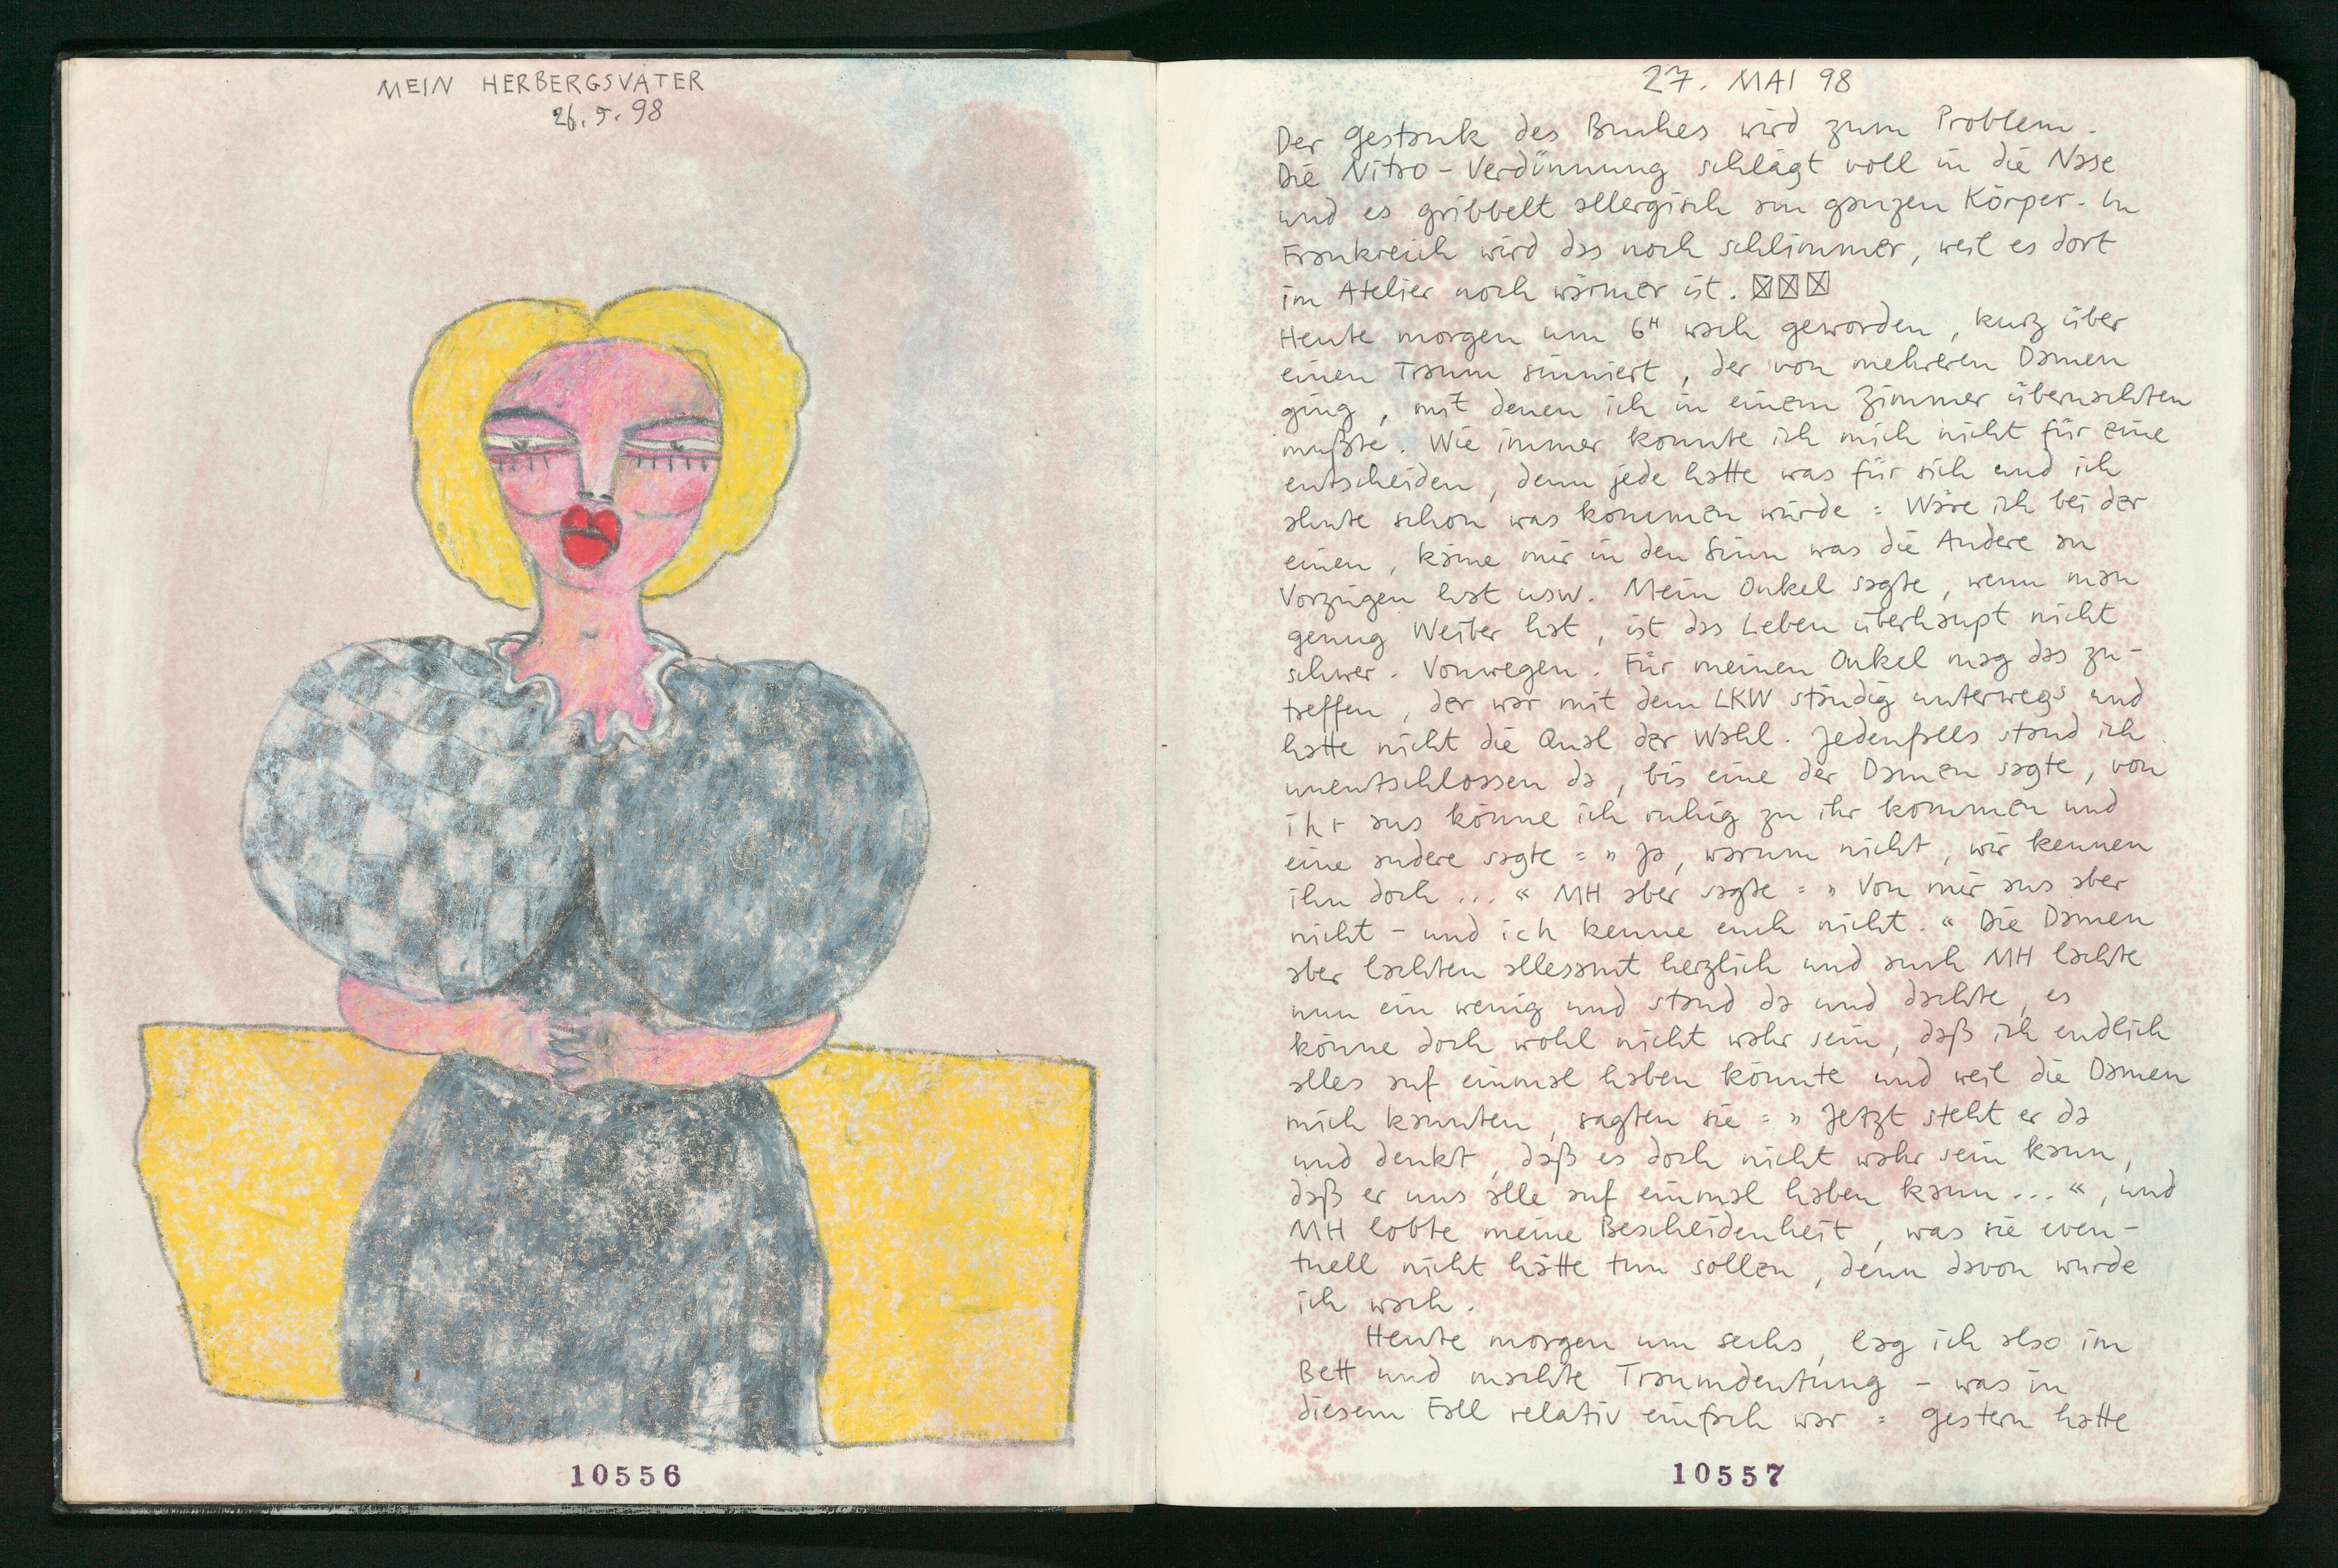 MEIN HERBERGSVATER
26.5.98
10556
27. MAI 98
Der Gestank des Buches wird zum Problem.
Die Nitro-Verdünnung schlägt voll in die Nase
und es gribbelt allergisch am ganzen Körper. In
Frankreich wird das noch schlimmer, weil es dort
im Atelier noch wärmer ist. ☒☒☒
Heute morgen um 6ᴴ wach geworden, kurz über
einen Traum sinniert, der von mehreren Damen
ging, mit denen ich in einem Zimmer übernachten
mußte. Wie immer konnte ich mich nicht für eine
entscheiden, denn jede hatte was für sich und ich
ahnte schon was kommen würde: Wäre ich bei der
einen, käme mir in den Sinn was die Andere an
Vorzügen hat usw. Mein Onkel sagte, wenn man
genug Weiber hat, ist das Leben überhaupt nicht
schwer. Vonwegen. Für meinen Onkel mag das zu-
treffen, der war mit dem LKW ständig unterwegs und
hatte nicht die Qual der Wahl. Jedenfalls stand ich
unentschlossen da, bis eine der Damen sagte, von
ihr aus könne ich ruhig zu ihr kommen und
eine andere sagte: » Ja, warum nicht, wir kennen
ihn doch ... « MH aber sagte: » Von mir aus aber
nicht - und ich kenne euch nicht. « Die Damen
aber lachten allesamt herzlich und auch MH lachte
nun ein wenig und stand da und dachte, es
könne doch wohl nicht wahr sein, daß ich endlich
alles auf einmal haben könnte und weil die Damen
mich kannten, sagten sie: » Jetzt steht er da
und denkt, daß es doch nicht wahr sein kann,
daß er uns alle auf einmal haben kann ... «, und
MH lobte meine Bescheidenheit, was sie even-
tuell nicht hätte tun sollen, denn davon wurde
ich wach.
Heute morgen um sechs, lag ich also im
Bett und machte Traumdeutung - was in
diesem Fall relativ einfach war: Gestern hatte
10557